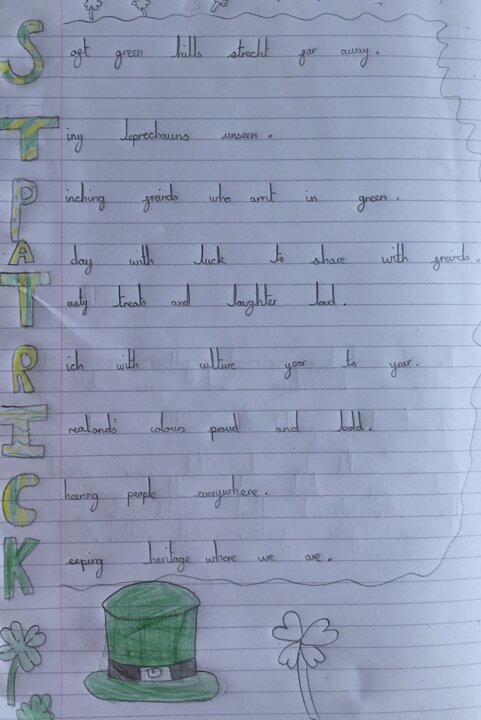 Soft green hills strecht far away.
Tiny leprechauns unseen.
Pinching freinds who arnt in green.
A day with luck to share with freinds.
Tasty treats and laughter loud.
Rich with culture year to year.
Irealands' colours proud and bold.
Cheering people everywhere.
Keeping heritage where we are.